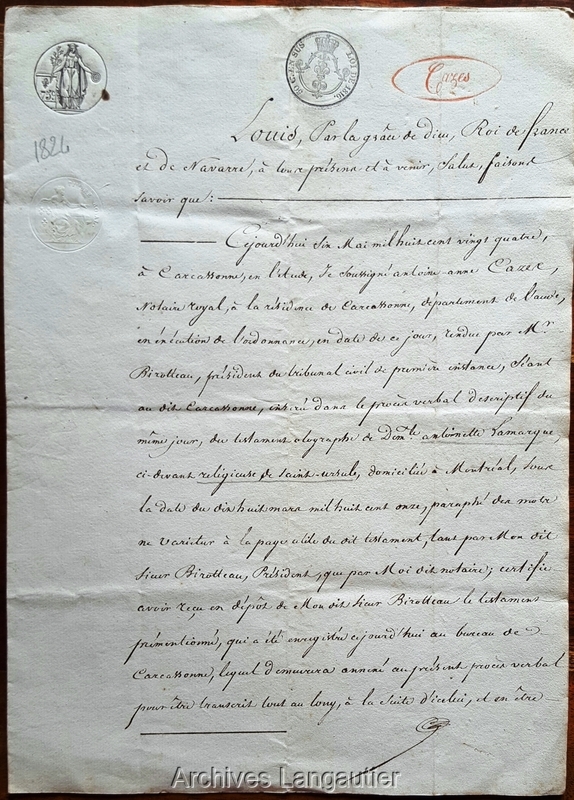 Cazes
1824
Louis, Par la grâce de Dieu, Roi de france
et de Navarre, à tous présens et à venir, Salut, faisons
savoir que :
Cejourd'hui six Mai mil huit cent vingt quatre,
à Carcassonne, en l'étude, Je soussigné antoine-anne Cazes,
Notaire royal, à la résidence de Carcassonne, département de l'aude,
en exécution de l'ordonnance, en date de ce jour, rendue par Mr
Birotteau, président du tribunal civil de première instance, séant
au dit Carcassonne, inséré dans le procès verbal descriptif du
même jour, du testament olographe de Demlle antoinette Lamarque
ci-devant religieuse de saint-ursule, domiciliée à Montréal, sous
la date du dix huit mars mil huit cent onze, paraphé des mots
ne varietur à la page utile du dit testament, tant par Mon dit
sieur Birotteau, Président, que par Moi dit notaire; certifie
avoir reçu en dépôt de Mon dit sieur Birotteau le testament
prémentionné, qui a été enregistré cejourd'hui au bureau de
Carcassonne, lequel demeurera annexé au présent procès verbal
pour être transcrit tout au long, à la suite d'icelui, et en être
Archives Langautier